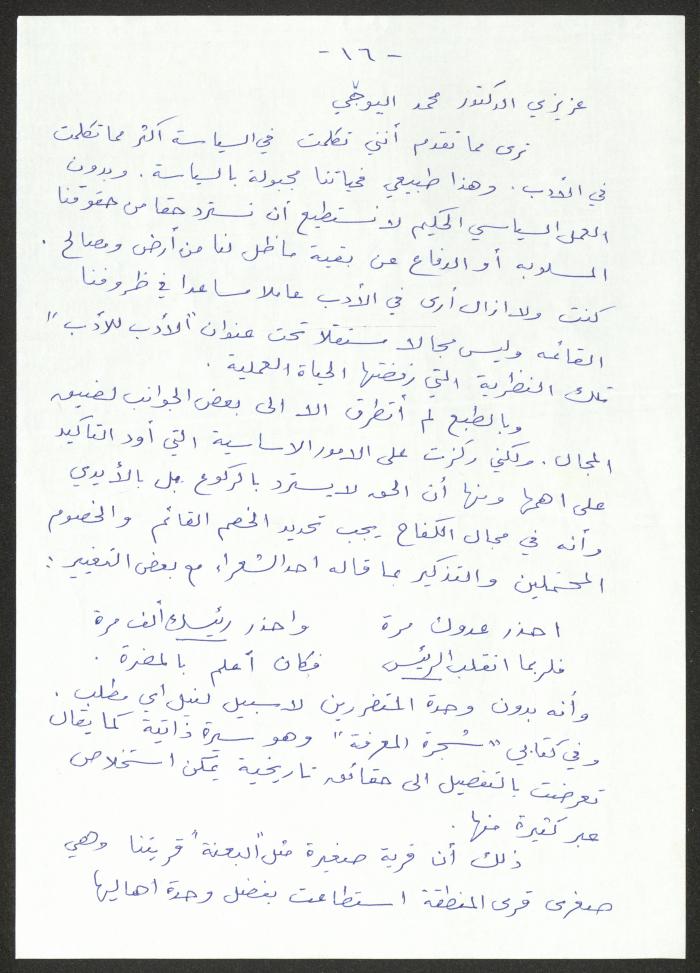 - ١٦ -
عزيزي الدكتور محمد اليوجي
نرى مما تقدم أنني تكلمت في السياسة أكثر مما تكلمت
في الأدب . وهذا طبيعي فحياتنا مجبولة بالسياسة . وبدون
العمل السياسي الحكيم لا نستطيع أن نسترد حقا من حقوقنا
المسلوبه أو الدفاع عن بقية ما ظل لنا من أرض ومصالح .
كنت ولا ازال أرى في الأدب عاملا مساعدا في ظروفنا
القائمه وليس مجالا مستقلا تحت عنوان "الأدب للأدب"
تلك النظرية التي رفضتها الحياة العملية .
وبالطبع لم أتطرق الا الى بعض الجوانب لضيق
المجال . ولكني ركزت على الامور الاساسية التي أود التأكيد
على اهمها ومنها أن الحق لا يسترد بالركوع بل بالأيدي
وأنه في مجال الكفاح يجب تحديد الخصم القائم والخصوم
المحتملين والتذكير بما قاله احد الشعراء مع بعض التغيير :
احذر عدوك مرة واحذر رئيسك ألف مرة
فلربما انقلب الرئيس فكان أعلم بالمضرة .
وأنه بدون وحدة المتضررين لا سبيل لنيل اي مطلب .
وفي كتابي "شجرة المعرفة" وهو سيرة ذاتية كما يقال
تعرضت بالتفصيل الى حقائق تاريخية يمكن استخلاص
عبر كثيرة منها .
ذلك أن قرية صغيرة مثل "البعنة" قريتنا وهي
صغرى قرى المنطقة استطاعت بفضل وحدة اهاليها